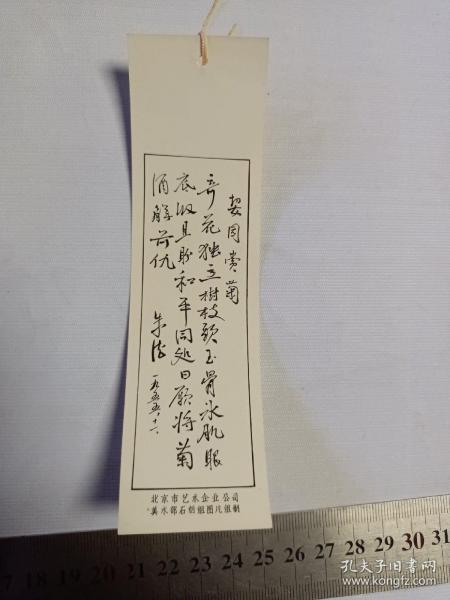 契园赏菊
奇花独立树枝头玉骨冰肌眼
底收且盼和平同处日愿将菊
酒解前仇
朱德
一九五五.十一.
北京市艺术企业公司
冀水邻石信组图片组制
7 18 19 20 21 22 23 24 25 26 27 28 29 30 31
孔夫子旧书网
www.kongfz.com